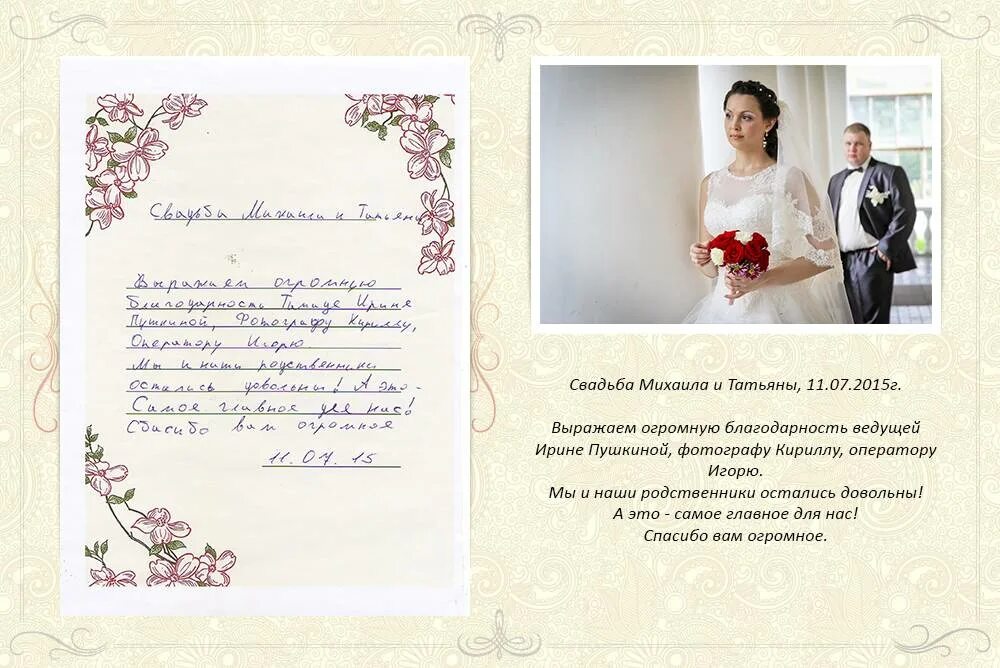 Свадьба Михаила и Татьяны
Выражаем огромную
благодарность Тамаде Ирине
Пушкиной, Фотографу Кириллу,
Оператору Игорю.
Мы и наши родственники
остались довольны! А это -
Самое главное для нас!
Спасибо вам огромное
11.07.15
Свадьба Михаила и Татьяны, 11.07.2015г.
Выражаем огромную благодарность ведущей
Ирине Пушкиной, фотографу Кириллу, оператору
Игорю.
Мы и наши родственники остались довольны!
А это - самое главное для нас!
Спасибо вам огромное.